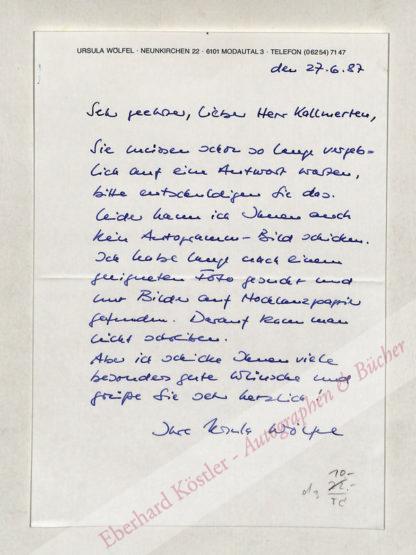 URSULA WÖLFEL · NEUNKIRCHEN 22 · 6101 MODAUTAL 3 · TELEFON (06254) 7147
den 27.6.87
Sehr geehrter, lieber Herr Kollmerten,
Sie müssen schon so lange vergeb-
lich auf eine Antwort warten,
bitte entschuldigen Sie das.
Leider kann ich Ihnen auch
kein Autogramm-Bild schicken.
Ich habe lange nach einem
geeigneten Foto gesucht und
nur Bilder auf Hochglanzpapier
gefunden. Darauf kann man
nicht schreiben.
Aber ich schicke Ihnen viele
besonders gute Wünsche und
grüße Sie sehr herzlich!
Ihre Ursula Wölfel
Eberhard Köstler - Autographen & Bücher
10.-